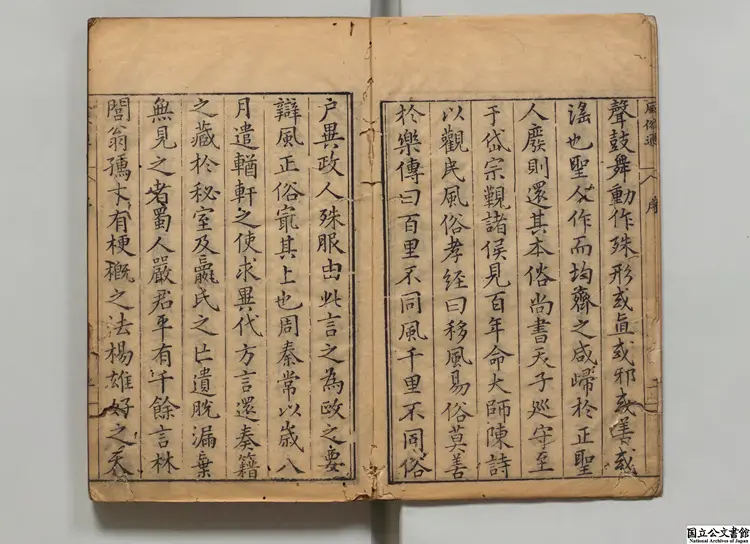 風俗通 序
聲鼓舞動作殊形或直或邪或善或
淫也聖人作而均齊之咸歸於正聖
人廢則還其本俗尚書天子巡守至
于岱宗覲諸侯見百年命大師陳詩
以觀民風俗孝經曰移風易俗莫善
於樂傳曰百里不同風千里不同俗
户異政人殊服由此言之為政之要
辯風正俗㝡其上也周秦常以歲八
月遣輶軒之使求異代方言還奏籍
之藏於秘室及嬴氏之亡遺脱漏棄
無見之者蜀人嚴君平有千餘言林
閭翁孺才有梗概之法楊雄好之天
国立公文書館
National Archives of Japan